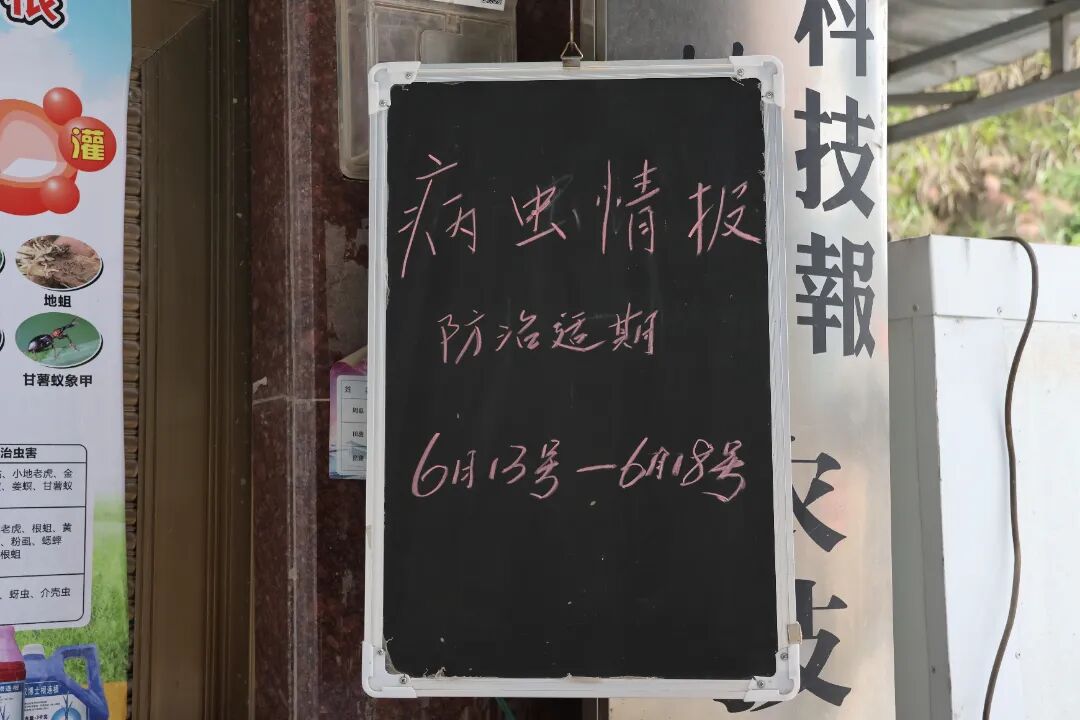 灌
地蛆
甘薯蚁象甲
治虫害
、小地老虎、金
、姜螟、甘薯蚁
老虎、根蛆、黄
、粉虱、蟋蟀
根蛆
、蚜虫、介壳虫
病虫情报
防治适期
6月13号—6月18号
科技報
农技